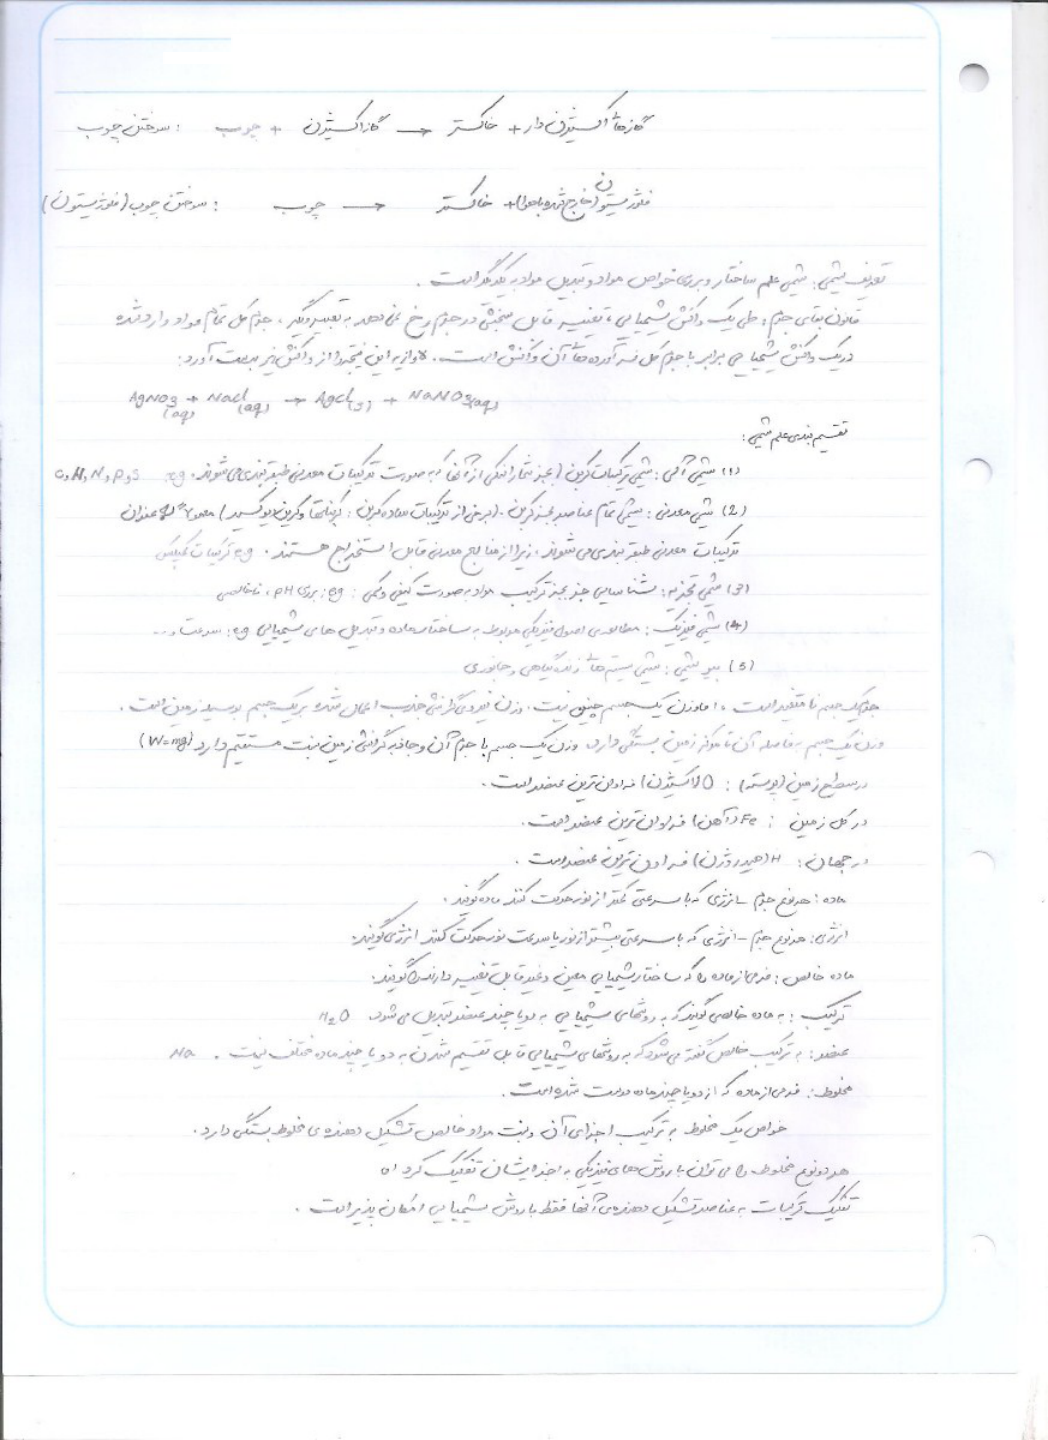 سوختن چوب : چوب + گاز اکسیژن → خاکستر + گازهای اکسیژن دار
سوختن چوب (فلوژیستون) : چوب → خاکستر + فلوژیستون (خارج شده با هوا)
تعریف شیمی : شیمی علم ساختار و بررسی خواص مواد و تبدیل مواد به یکدیگر است .
قانون بقای جرم : طی یک واکنش شیمیایی ، تغییر قابل سنجشی در جرم رخ نمی دهد به تعبیر دیگر ، جرم کل تمام مواد وارد شده
در یک واکنش شیمیایی برابر با جرم کل فرآورده های آن واکنش است . لاوازیه این نتیجه را از واکنش زیر بدست آورد :
AgNO3 (aq) + NaCl (aq) → AgCl (s) + NaNO3 (aq)
تقسیم بندی علم شیمی :
(1) شیمی آلی : شیمی ترکیبات کربن (بجز شمار اندکی از آنها که به صورت ترکیبات معدنی طبقه بندی می شوند . eg: O,N,P,S
(2) شیمی معدنی : شیمی تمام عناصر بجز کربن . (برخی از ترکیبات ساده کربن : کربناتها و کربن دیوکسید) معمولاً به عنوان
ترکیبات معدنی طبقه بندی می شوند ، زیرا از منابع معدنی قابل استخراج هستند . eg ترکیبات کمپلکس
(3) شیمی تجزیه : شناسایی جز بجز ترکیب مواد به صورت کیفی و کمی : eg: بررسی pH ، ناخالصی
(4) شیمی فیزیک : مطالعه ی اصول فیزیکی مربوط به ساختار ماده و تبدیل های شیمیایی eg: سرعت و ...
(5) بیو شیمی : شیمی سیستم های زنده گیاهی و جانوری
جرم یک جسم نا متغیر است ، اما وزن یک جسم چنین نیست . وزن نیروی گرانشی جذب اعمال شده بر یک جسم بوسیله زمین است .
وزن یک جسم به فاصله آن تا مرکز زمین بستگی دارد . وزن یک جسم با جرم آن و جاذبه گرانشی زمین نسبت مستقیم دارد (W=mg)
در سطح زمین (پوسته) : O (اکسیژن) فراوان ترین عنصر است .
در کل زمین : Fe (آهن) فراوان ترین عنصر است .
در جهان : H (هیدروژن) فراوان ترین عنصر است .
ماده : هر نوع جرم - انرژی که با سرعتی کمتر از نور حرکت کند ماده گویند .
انرژی : هر نوع جرم - انرژی که با سرعتی بیشتر از نور یا سرعت نور حرکت کند انرژی گویند .
ماده خالص : فرمی از ماده را که ساختار شیمیایی معین و غیر قابل تغییر دارند را گویند .
ترکیب : به ماده خالصی گویند که به روشهای شیمیایی به دو یا چند عنصر تبدیل می شود . H2O
عنصر : به ترکیب خالص گفته می شود که به روشهای شیمیایی قابل تقسیم شدن به دو یا چند ماده مختلف نیست . Na
مخلوط : فرمی از ماده که از دو یا چند ماده درست شده است .
خواص یک مخلوط به ترکیب اجزای آن و نسبت مواد خالص تشکیل دهنده ی مخلوط بستگی دارد .
هر دو نوع مخلوط را می توان با روش های فیزیکی به اجزایشان تفکیک کرد
تفکیک ترکیبات به عناصر تشکیل دهنده ی آنها فقط با روش شیمیایی امکان پذیر است .